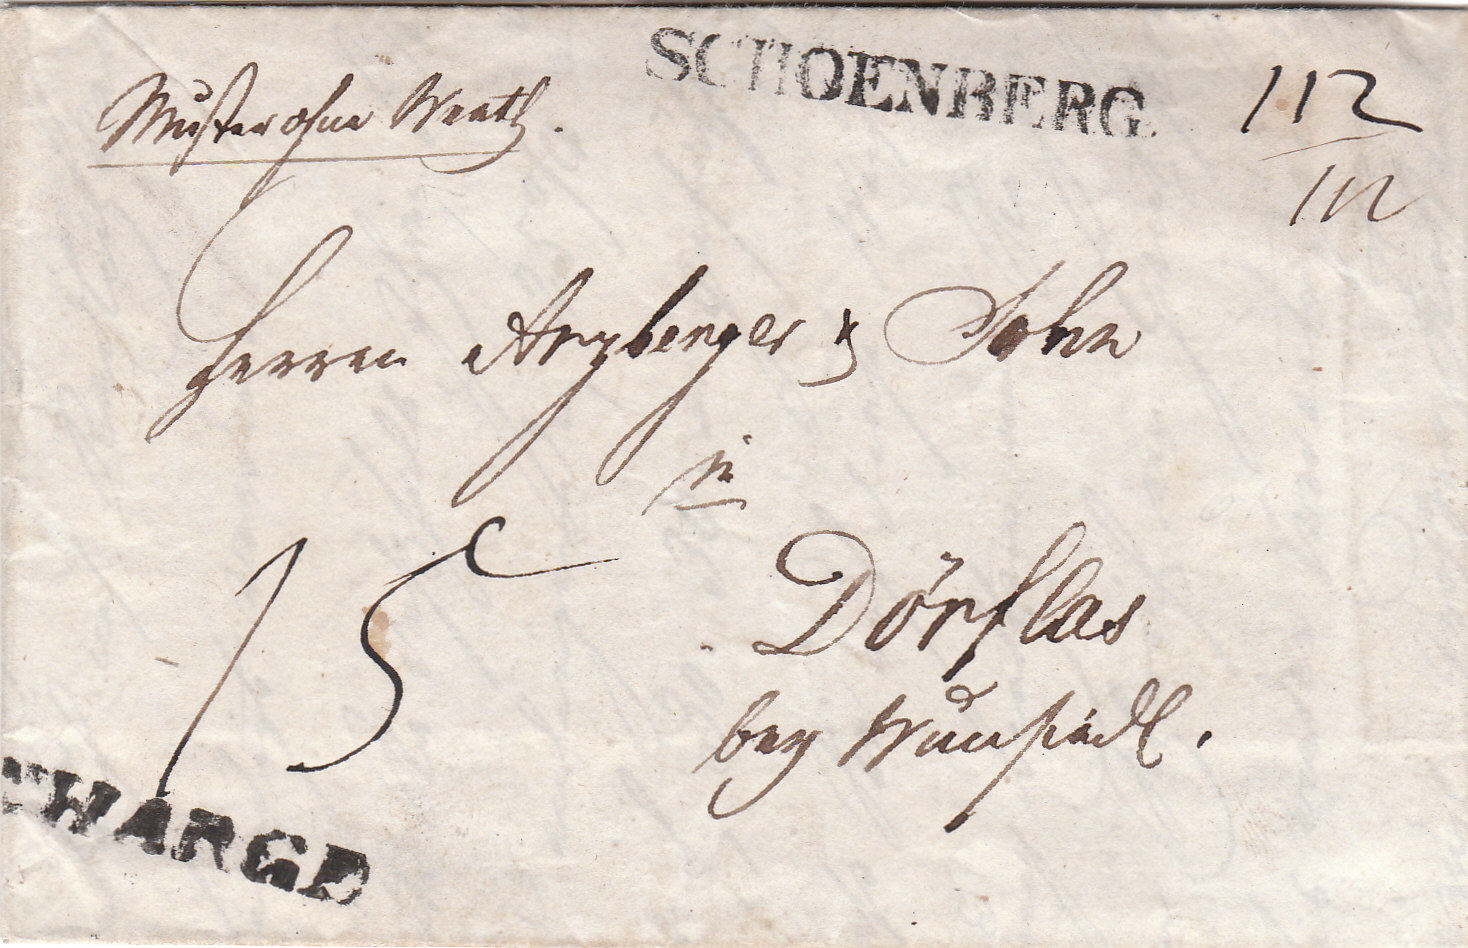 SCHOENBERG
Muster ohne Werth.
112
112
Herren Arzberger & Sohn
in
Dörflas
bey Wunsiedl.
15
CHARGE